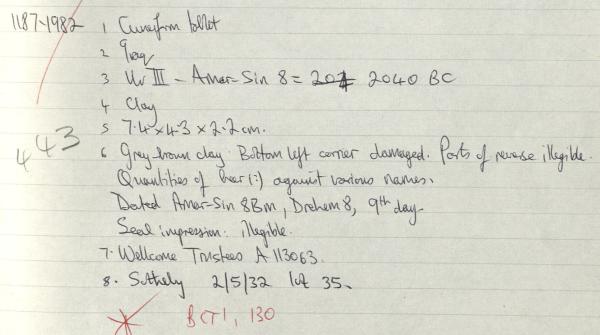 1187-1982
1 Cuneiform tablet
2 Iraq
3 Ur III - Amar-Sin 8 = 2040 BC
4 Clay
443
5 7.4 x 4.3 x 2.2 cm.
6 Grey-brown clay. Bottom left corner damaged. Parts of reverse illegible.
Quantities of beer (?) against various names.
Dated Amar-Sin 8Bm, Drehem 8, 9th day
Seal impression: illegible.
7. Wellcome Trustees A 113063.
8. Sotheby 2/5/32 lot 35.
BCT1, 130